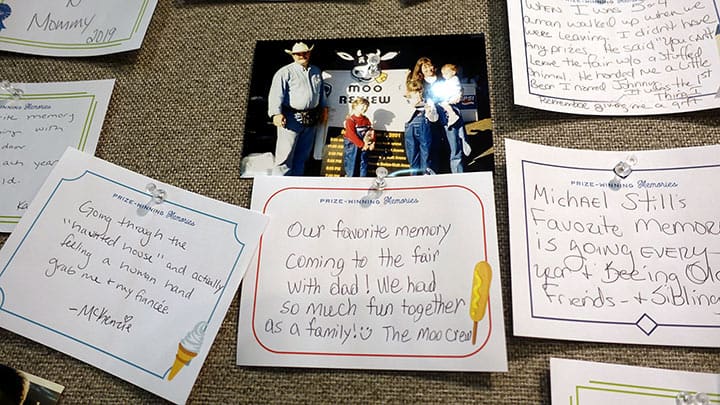 N
Mommy 2019
Memories
ite memory
ing with
door
ach year
id.
PRIZE-WINNING Memories
Going through the
"haunted house" and actually
feeling a human hand
grab me + my fiancée
-McKenzie
MOO
REVIEW
PEPSI
2001
PRIZE-WINNING Memories
Our favorite memory
coming to the fair
with dad! We had
so much fun together
as a family! The Moo Crew
WHEN I was 3 or 4
a man walked up when we
were leaving. I didn't have
any prizes. He said "You can't
Leave the fair w/o a stuffed
animal. He handed me a Little
Bear I named Johnny.
It was the 1st
Thing I
Remember giving me a gift
PRIZE-WINNING Memories
Michael Still's
Favorite Memorie
is going EVERY
year + Beeing Old
Friends - + Sibling
Memories